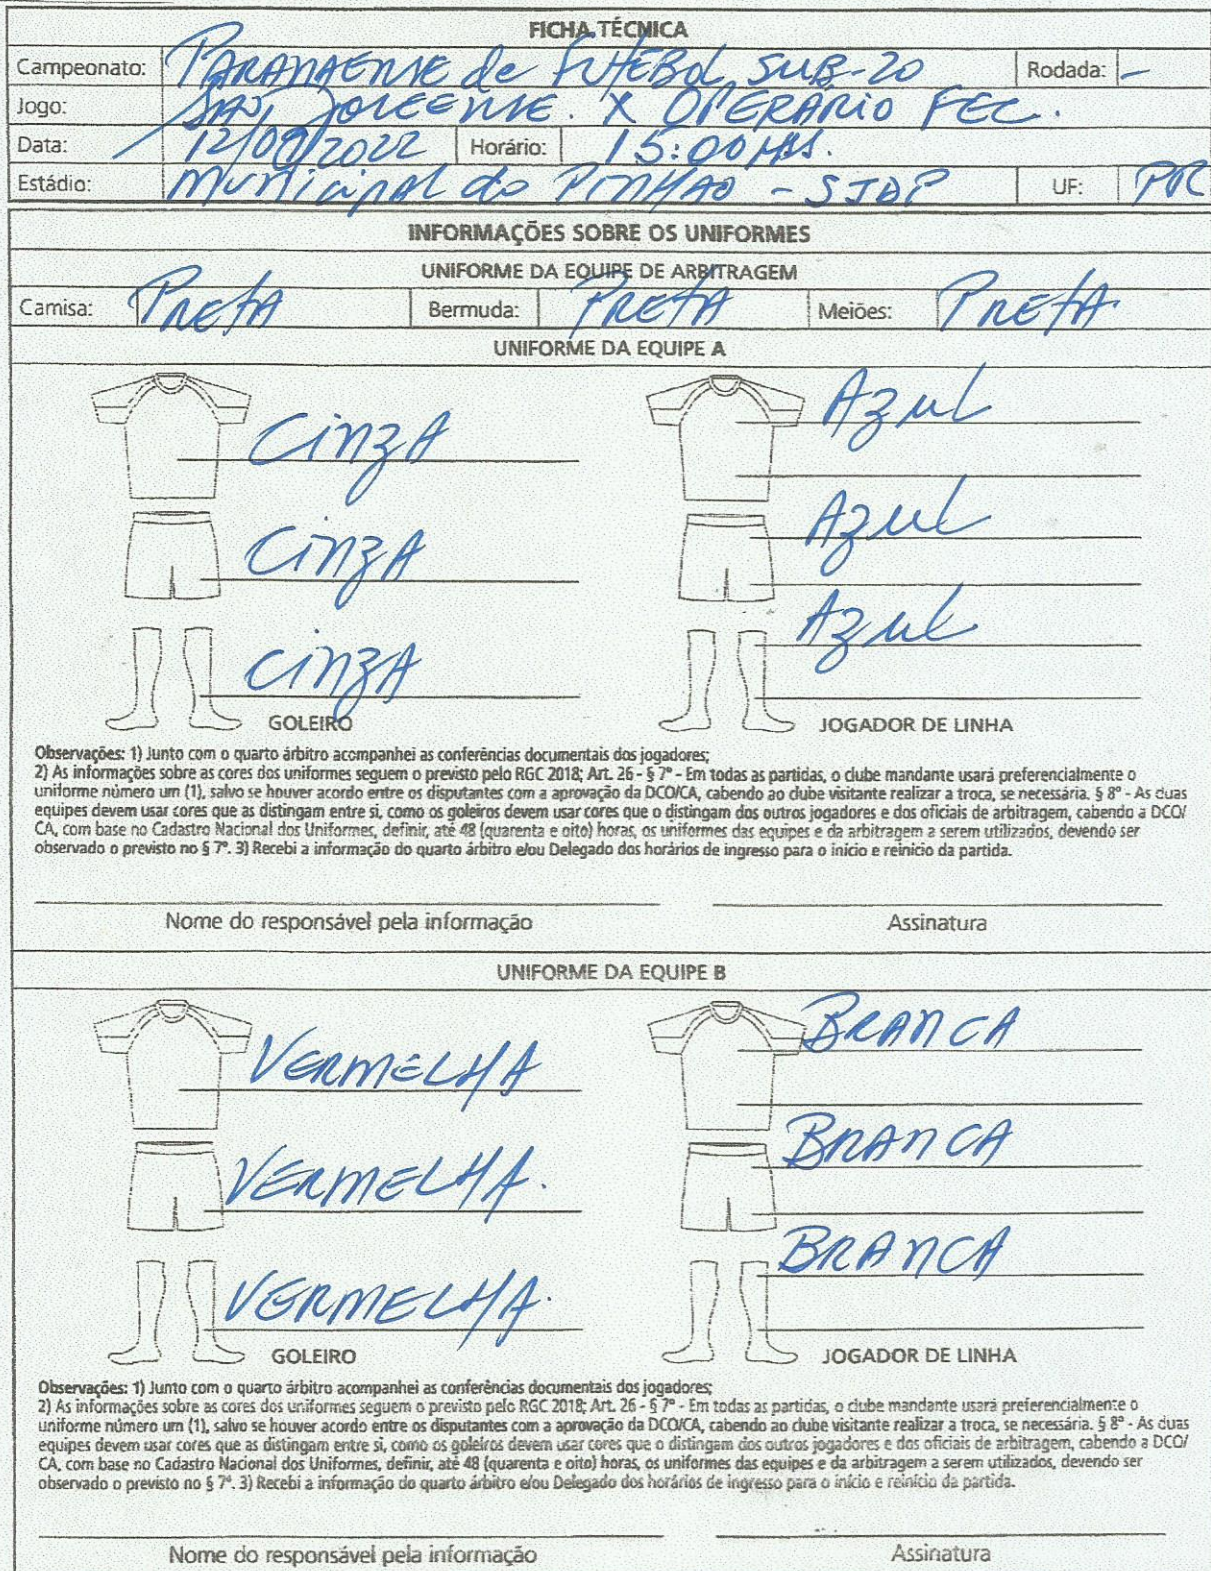 FICHA TÉCNICA
Campeonato: PARANAENSE de FUTEBOL SUB-20 Rodada: -
Jogo: SÃO JOSEENSE. X OPERÁRIO FEC.
Data: 12/09/2022 Horário: 15:00 HS.
Estádio: Municipal do PINHÃO - SJDP UF: PR
INFORMAÇÕES SOBRE OS UNIFORMES
UNIFORME DA EQUIPE DE ARBITRAGEM
Camisa: PRETA Bermuda: PRETA Meiões: PRETA.
UNIFORME DA EQUIPE A
CINZA Azul
CINZA Azul
CINZA Azul
GOLEIRO JOGADOR DE LINHA
Observações: 1) Junto com o quarto árbitro acompanhei as conferências documentais dos jogadores;
2) As informações sobre as cores dos uniformes seguem o previsto pelo RGC 2018; Art. 26 - § 7º - Em todas as partidas, o clube mandante usará preferencialmente o
uniforme número um (1), salvo se houver acordo entre os disputantes com a aprovação da DCO/CA, cabendo ao clube visitante realizar a troca, se necessária. § 8º - As duas
equipes devem usar cores que as distingam entre si, como os goleiros devem usar cores que o distingam dos outros jogadores e dos oficiais de arbitragem, cabendo a DCO/
CA, com base no Cadastro Nacional dos Uniformes, definir, até 48 (quarenta e oito) horas, os uniformes das equipes e da arbitragem a serem utilizados, devendo ser
observado o previsto no § 7º. 3) Recebi a informação do quarto árbitro e/ou Delegado dos horários de ingresso para o início e reinício da partida.
Nome do responsável pela informação Assinatura
UNIFORME DA EQUIPE B
VERMELHA BRANCA
VERMELHA. BRANCA
VERMELHA. BRANCA
GOLEIRO JOGADOR DE LINHA
Observações: 1) Junto com o quarto árbitro acompanhei as conferências documentais dos jogadores;
2) As informações sobre as cores dos uniformes seguem o previsto pelo RGC 2018; Art. 26 - § 7º - Em todas as partidas, o clube mandante usará preferencialmente o
uniforme número um (1), salvo se houver acordo entre os disputantes com a aprovação da DCO/CA, cabendo ao clube visitante realizar a troca, se necessária. § 8º - As duas
equipes devem usar cores que as distingam entre si, como os goleiros devem usar cores que o distingam dos outros jogadores e dos oficiais de arbitragem, cabendo a DCO/
CA, com base no Cadastro Nacional dos Uniformes, definir, até 48 (quarenta e oito) horas, os uniformes das equipes e da arbitragem a serem utilizados, devendo ser
observado o previsto no § 7º. 3) Recebi a informação do quarto árbitro e/ou Delegado dos horários de ingresso para o início e reinício da partida.
Nome do responsável pela informação Assinatura